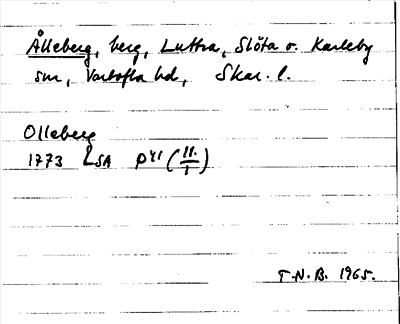 Ålleberg, berg, Luttra, Slöta o. Karleby
snr, Vartofta hd, Skar. l.
Olleberg
1773 LSA P41 (11/1)
T.N.B. 1965.